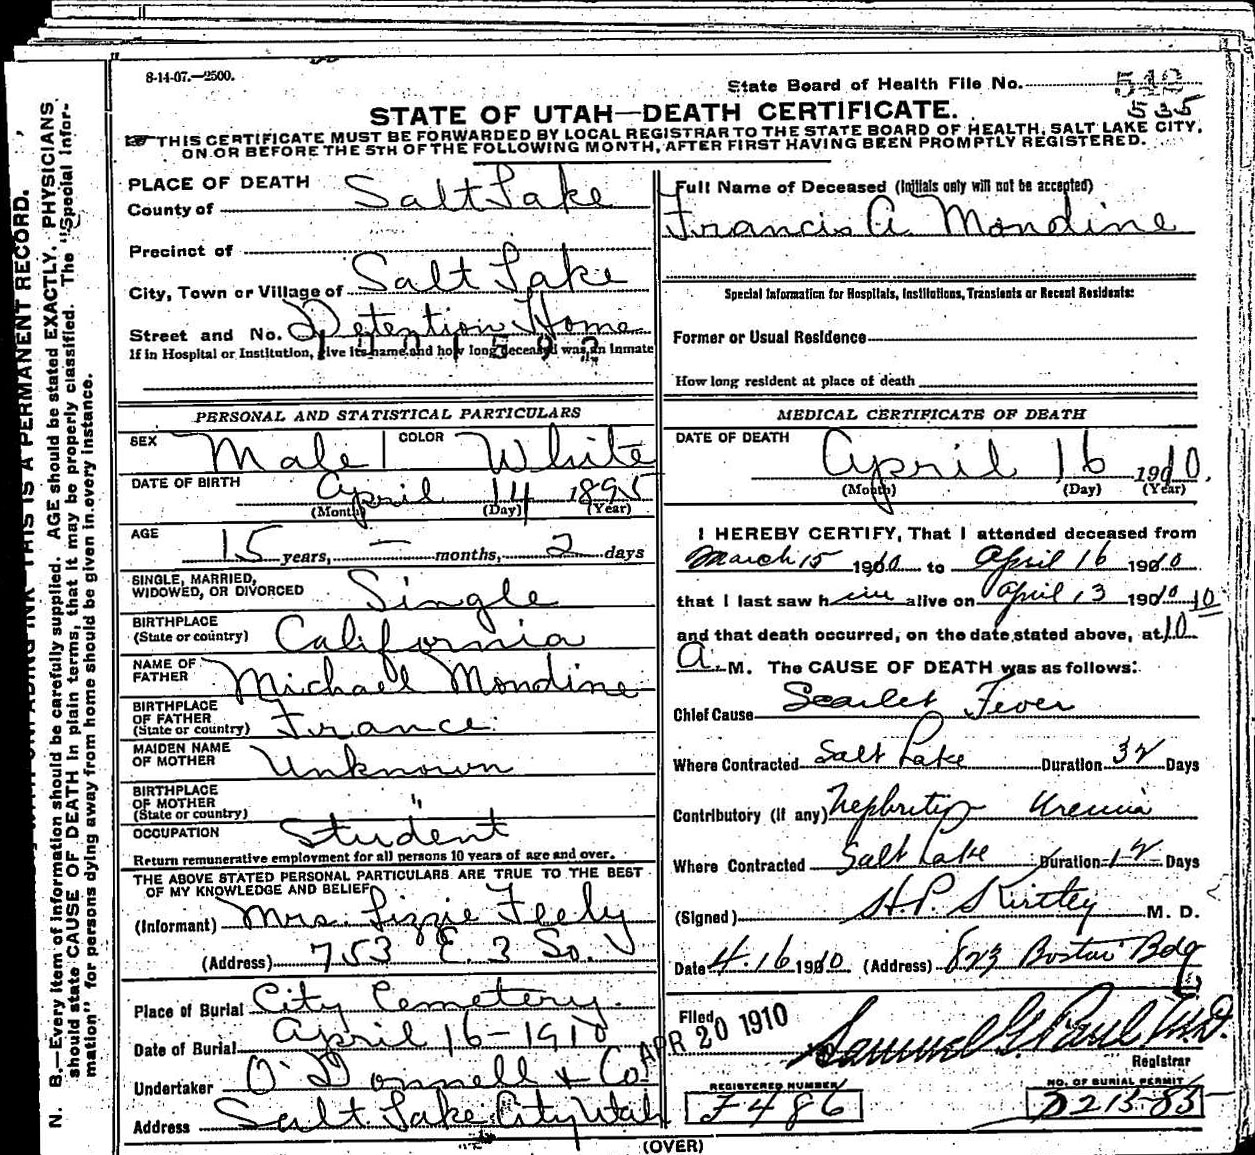 8-14-07.—2500.
State Board of Health File No. 542
535
STATE OF UTAH—DEATH CERTIFICATE.
THIS CERTIFICATE MUST BE FORWARDED BY LOCAL REGISTRAR TO THE STATE BOARD OF HEALTH, SALT LAKE CITY,
ON OR BEFORE THE 5TH OF THE FOLLOWING MONTH, AFTER FIRST HAVING BEEN PROMPTLY REGISTERED.
N. B.—Every item of information should be carefully supplied. AGE should be stated EXACTLY. PHYSICIANS
should state CAUSE OF DEATH in plain terms, that it may be properly classified. The "Special Infor-
mation" for persons dying away from home should be given in every instance.
INK—THIS IS A PERMANENT RECORD.
PLACE OF DEATH
County of Salt Lake
Precinct of
City, Town or Village of Salt Lake
Street and No. Detention Home
If in Hospital or Institution, give its name and how long deceased was an inmate
PERSONAL AND STATISTICAL PARTICULARS
SEX Male COLOR White
DATE OF BIRTH April 14 1895
(Month) (Day) (Year)
AGE 15 years, — months, 2 days
SINGLE, MARRIED,
WIDOWED, OR DIVORCED Single
BIRTHPLACE
(State or country) California
NAME OF
FATHER Michael Mondine
BIRTHPLACE
OF FATHER
(State or country) France
MAIDEN NAME
OF MOTHER Unknown
BIRTHPLACE
OF MOTHER
(State or country) "
OCCUPATION Student
Return remunerative employment for all persons 10 years of age and over.
THE ABOVE STATED PERSONAL PARTICULARS ARE TRUE TO THE BEST
OF MY KNOWLEDGE AND BELIEF
(Informant) Mrs. Lizzie Feely
(Address) 753 E. 3 So.
Place of Burial City Cemetery.
Date of Burial April 16-1910
Undertaker O'Donnell & Co.
Address Salt Lake City Utah
Full Name of Deceased (Initials only will not be accepted)
Francis A. Mondine
Special Information for Hospitals, Institutions, Transients or Recent Residents:
Former or Usual Residence
How long resident at place of death
MEDICAL CERTIFICATE OF DEATH
DATE OF DEATH April 16 1910.
(Month) (Day) (Year)
I HEREBY CERTIFY, That I attended deceased from
March 15 1910 to April 16 1910
that I last saw him alive on April 13 1910 10
and that death occurred, on the date stated above, at 10
A. M. The CAUSE OF DEATH was as follows:
Chief Cause Scarlet Fever
Where Contracted Salt Lake Duration 32 Days
Contributory (if any) Nephritis Uremia
Where Contracted Salt Lake Duration 12 Days
(Signed) H. P. Kirtley M. D.
Date 4.16 1910 (Address) 823 Boston Bdg
Filed APR 20 1910 Samuel G. Paul M.D.
Registrar
REGISTERED NUMBER NO. OF BURIAL PERMIT
F486 D215-83
(OVER)